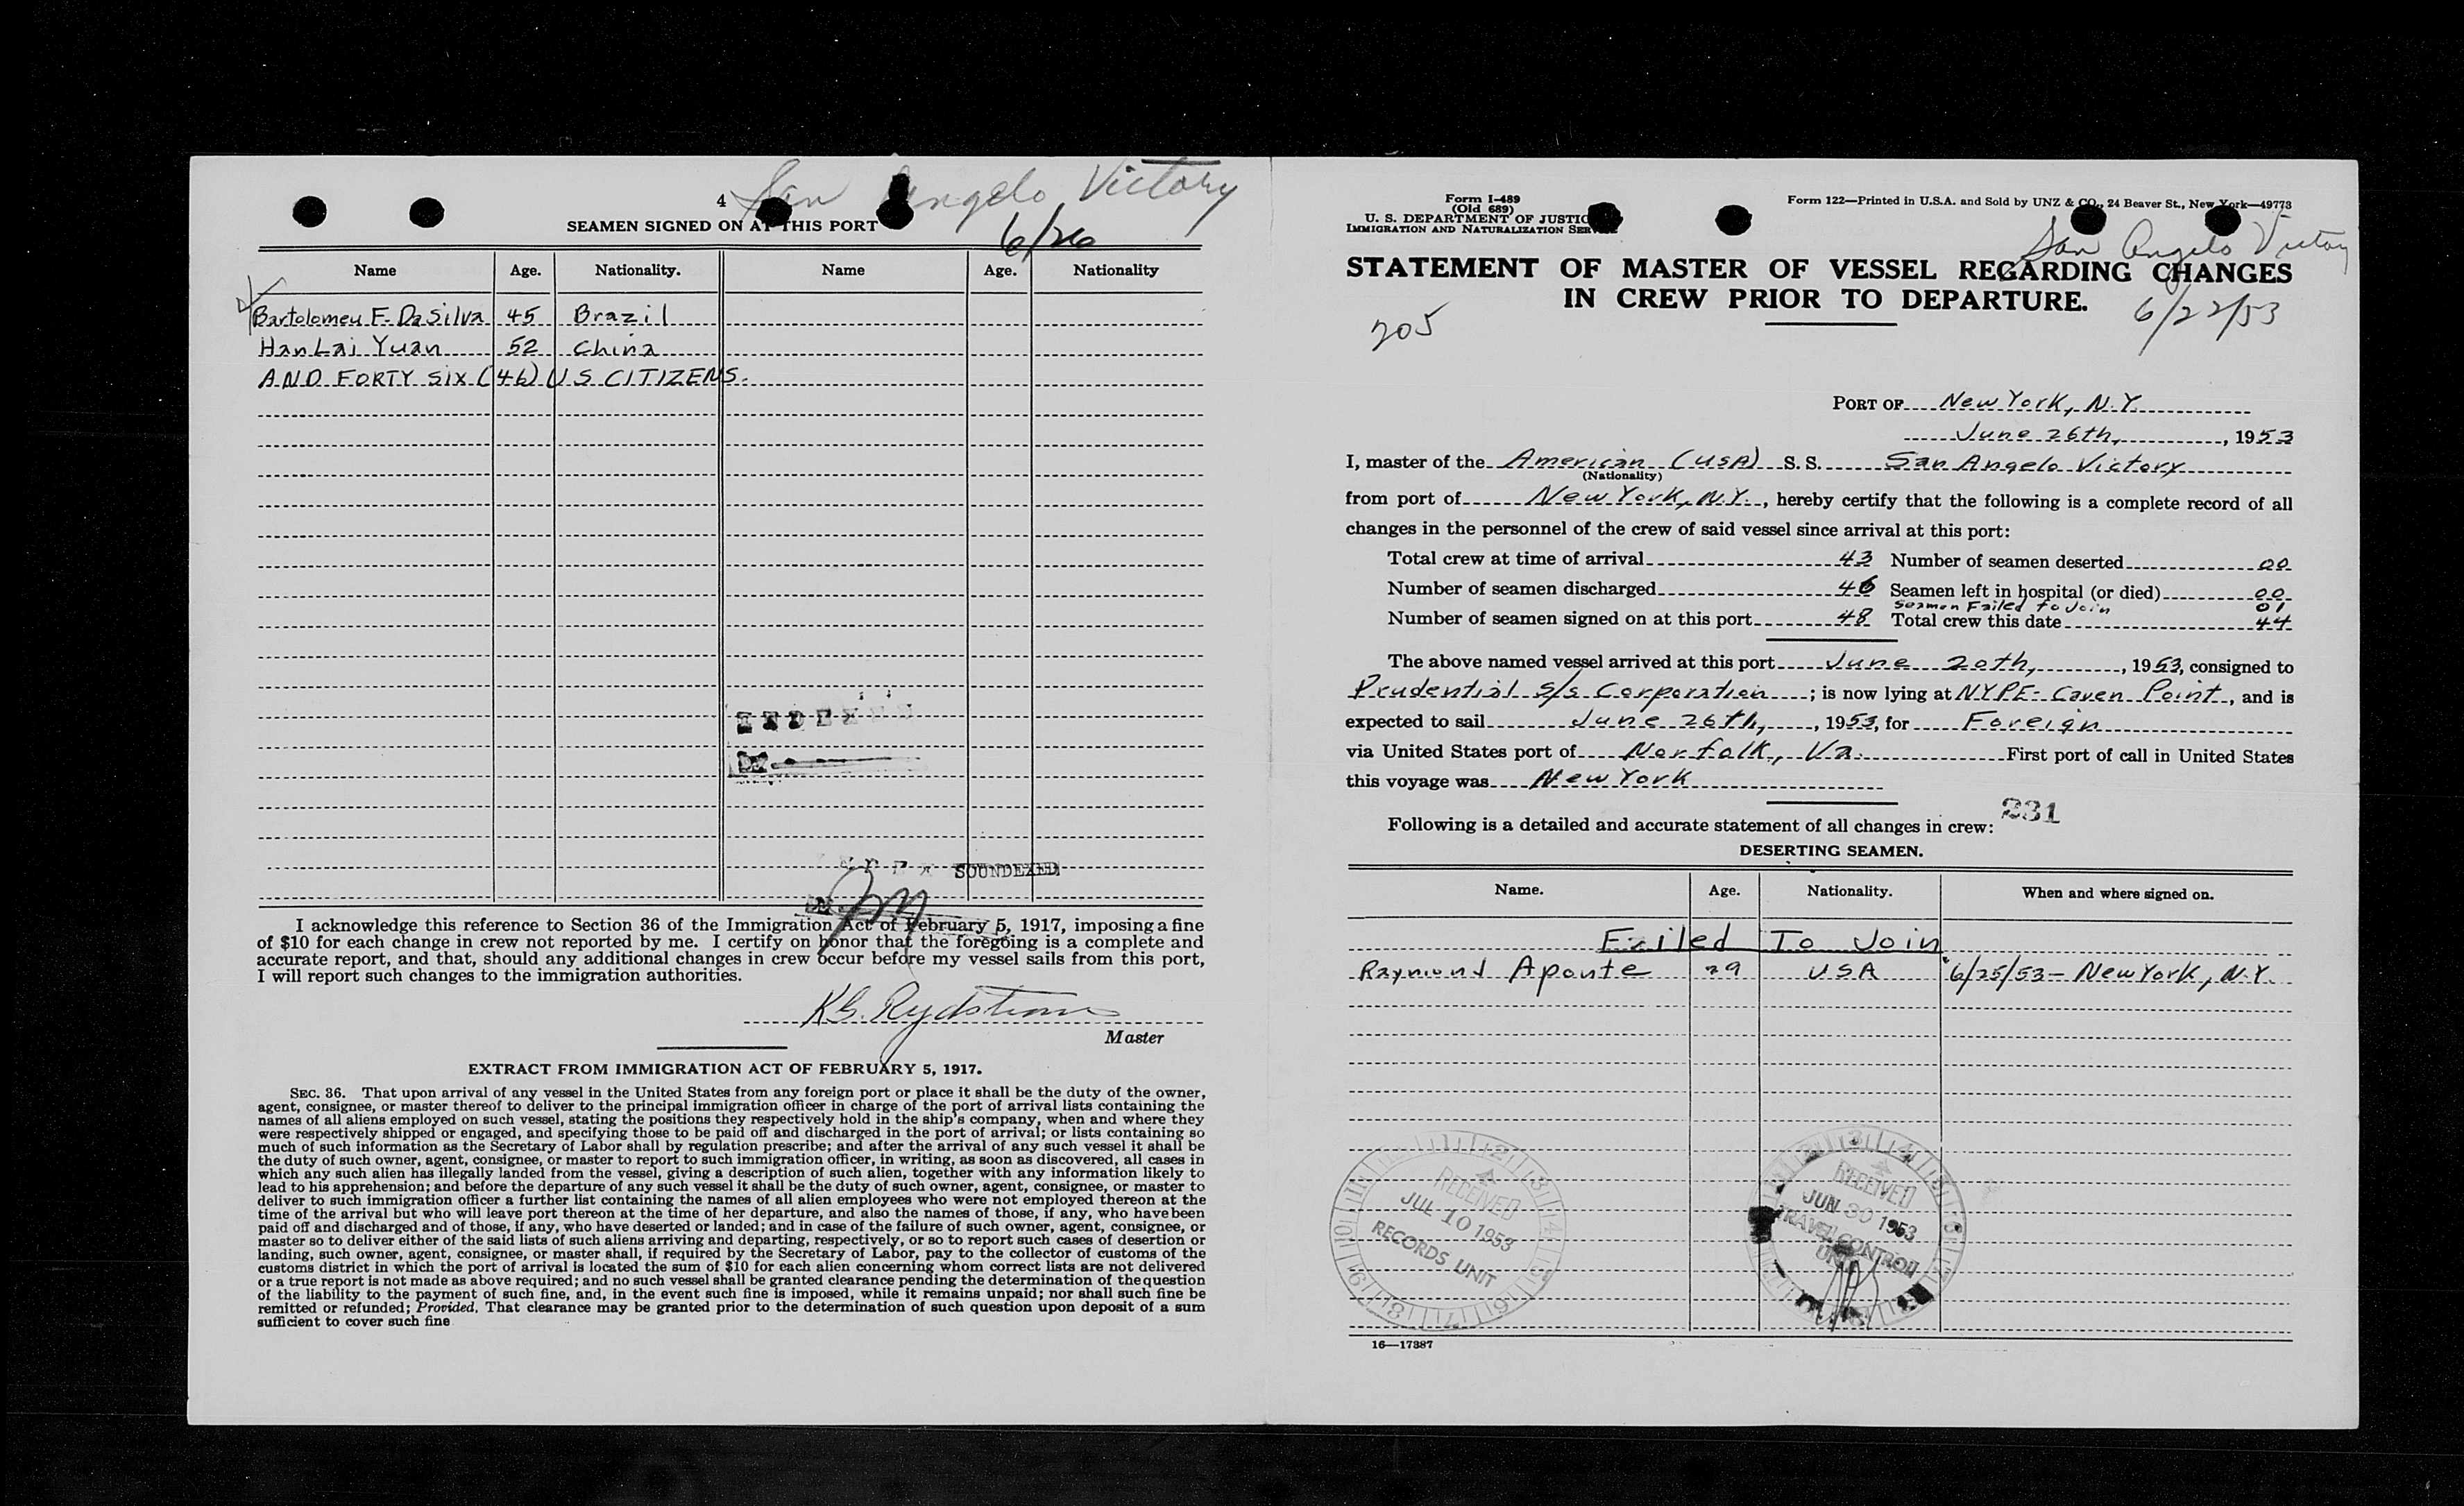 4
San Angelo Victory
6/26
SEAMEN SIGNED ON AT THIS PORT
Name Age. Nationality. Name Age. Nationality
Bartolomeu F. DaSilva 45 Brazil
Han Lai Yuan 52 China
AND FORTY SIX (46) US CITIZENS.
SOUNDEXED
I acknowledge this reference to Section 36 of the Immigration Act of February 5, 1917, imposing a fine
of $10 for each change in crew not reported by me. I certify on honor that the foregoing is a complete and
accurate report, and that, should any additional changes in crew occur before my vessel sails from this port,
I will report such changes to the immigration authorities.
K.G. Rydstrom
Master
EXTRACT FROM IMMIGRATION ACT OF FEBRUARY 5, 1917.
SEC. 36. That upon arrival of any vessel in the United States from any foreign port or place it shall be the duty of the owner,
agent, consignee, or master thereof to deliver to the principal immigration officer in charge of the port of arrival lists containing the
names of all aliens employed on such vessel, stating the positions they respectively hold in the ship's company, when and where they
were respectively shipped or engaged, and specifying those to be paid off and discharged in the port of arrival; or lists containing so
much of such information as the Secretary of Labor shall by regulation prescribe; and after the arrival of any such vessel it shall be
the duty of such owner, agent, consignee, or master to report to such immigration officer, in writing, as soon as discovered, all cases in
which any such alien has illegally landed from the vessel, giving a description of such alien, together with any information likely to
lead to his apprehension; and before the departure of any such vessel it shall be the duty of such owner, agent, consignee, or master to
deliver to such immigration officer a further list containing the names of all alien employees who were not employed thereon at the
time of the arrival but who will leave port thereon at the time of her departure, and also the names of those, if any, who have been
paid off and discharged and of those, if any, who have deserted or landed; and in case of the failure of such owner, agent, consignee, or
master so to deliver either of the said lists of such aliens arriving and departing, respectively, or so to report such cases of desertion or
landing, such owner, agent, consignee, or master shall, if required by the Secretary of Labor, pay to the collector of customs of the
customs district in which the port of arrival is located the sum of $10 for each alien concerning whom correct lists are not delivered
or a true report is not made as above required; and no such vessel shall be granted clearance pending the determination of the question
of the liability to the payment of such fine, and, in the event such fine is imposed, while it remains unpaid; nor shall such fine be
remitted or refunded; Provided, That clearance may be granted prior to the determination of such question upon deposit of a sum
sufficient to cover such fine
Form I-489
(Old 689)
U. S. DEPARTMENT OF JUSTICE
IMMIGRATION AND NATURALIZATION SERVICE
Form 122—Printed in U.S.A. and Sold by UNZ & CO., 24 Beaver St., New York—49773
San Angelo Victory
STATEMENT OF MASTER OF VESSEL REGARDING CHANGES
IN CREW PRIOR TO DEPARTURE.
6/22/53
205
PORT OF New York, N.Y.
June 26th, , 1953
I, master of the American (USA) S.S. San Angelo Victory
(Nationality)
from port of New York, N.Y. , hereby certify that the following is a complete record of all
changes in the personnel of the crew of said vessel since arrival at this port:
Total crew at time of arrival 43 Number of seamen deserted 00
Number of seamen discharged 46 Seamen left in hospital (or died) 00
Seamen Failed to Join 01
Number of seamen signed on at this port 48 Total crew this date 44
The above named vessel arrived at this port June 20th, , 1953, consigned to
Prudential S/S Corporation ; is now lying at NYPE- Caven Point , and is
expected to sail June 26th, , 1953, for Foreign
via United States port of Norfolk, Va. First port of call in United States
this voyage was New York
231
Following is a detailed and accurate statement of all changes in crew:
DESERTING SEAMEN.
Name. Age. Nationality. When and where signed on.
Failed To Join
Raymond Aponte 29 USA 6/25/53- New York, N.Y.
RECEIVED
JUL 10 1953
RECORDS UNIT
RECEIVED
JUN 30 1953
TRAVEL CONTROL
UNIT
16—17387